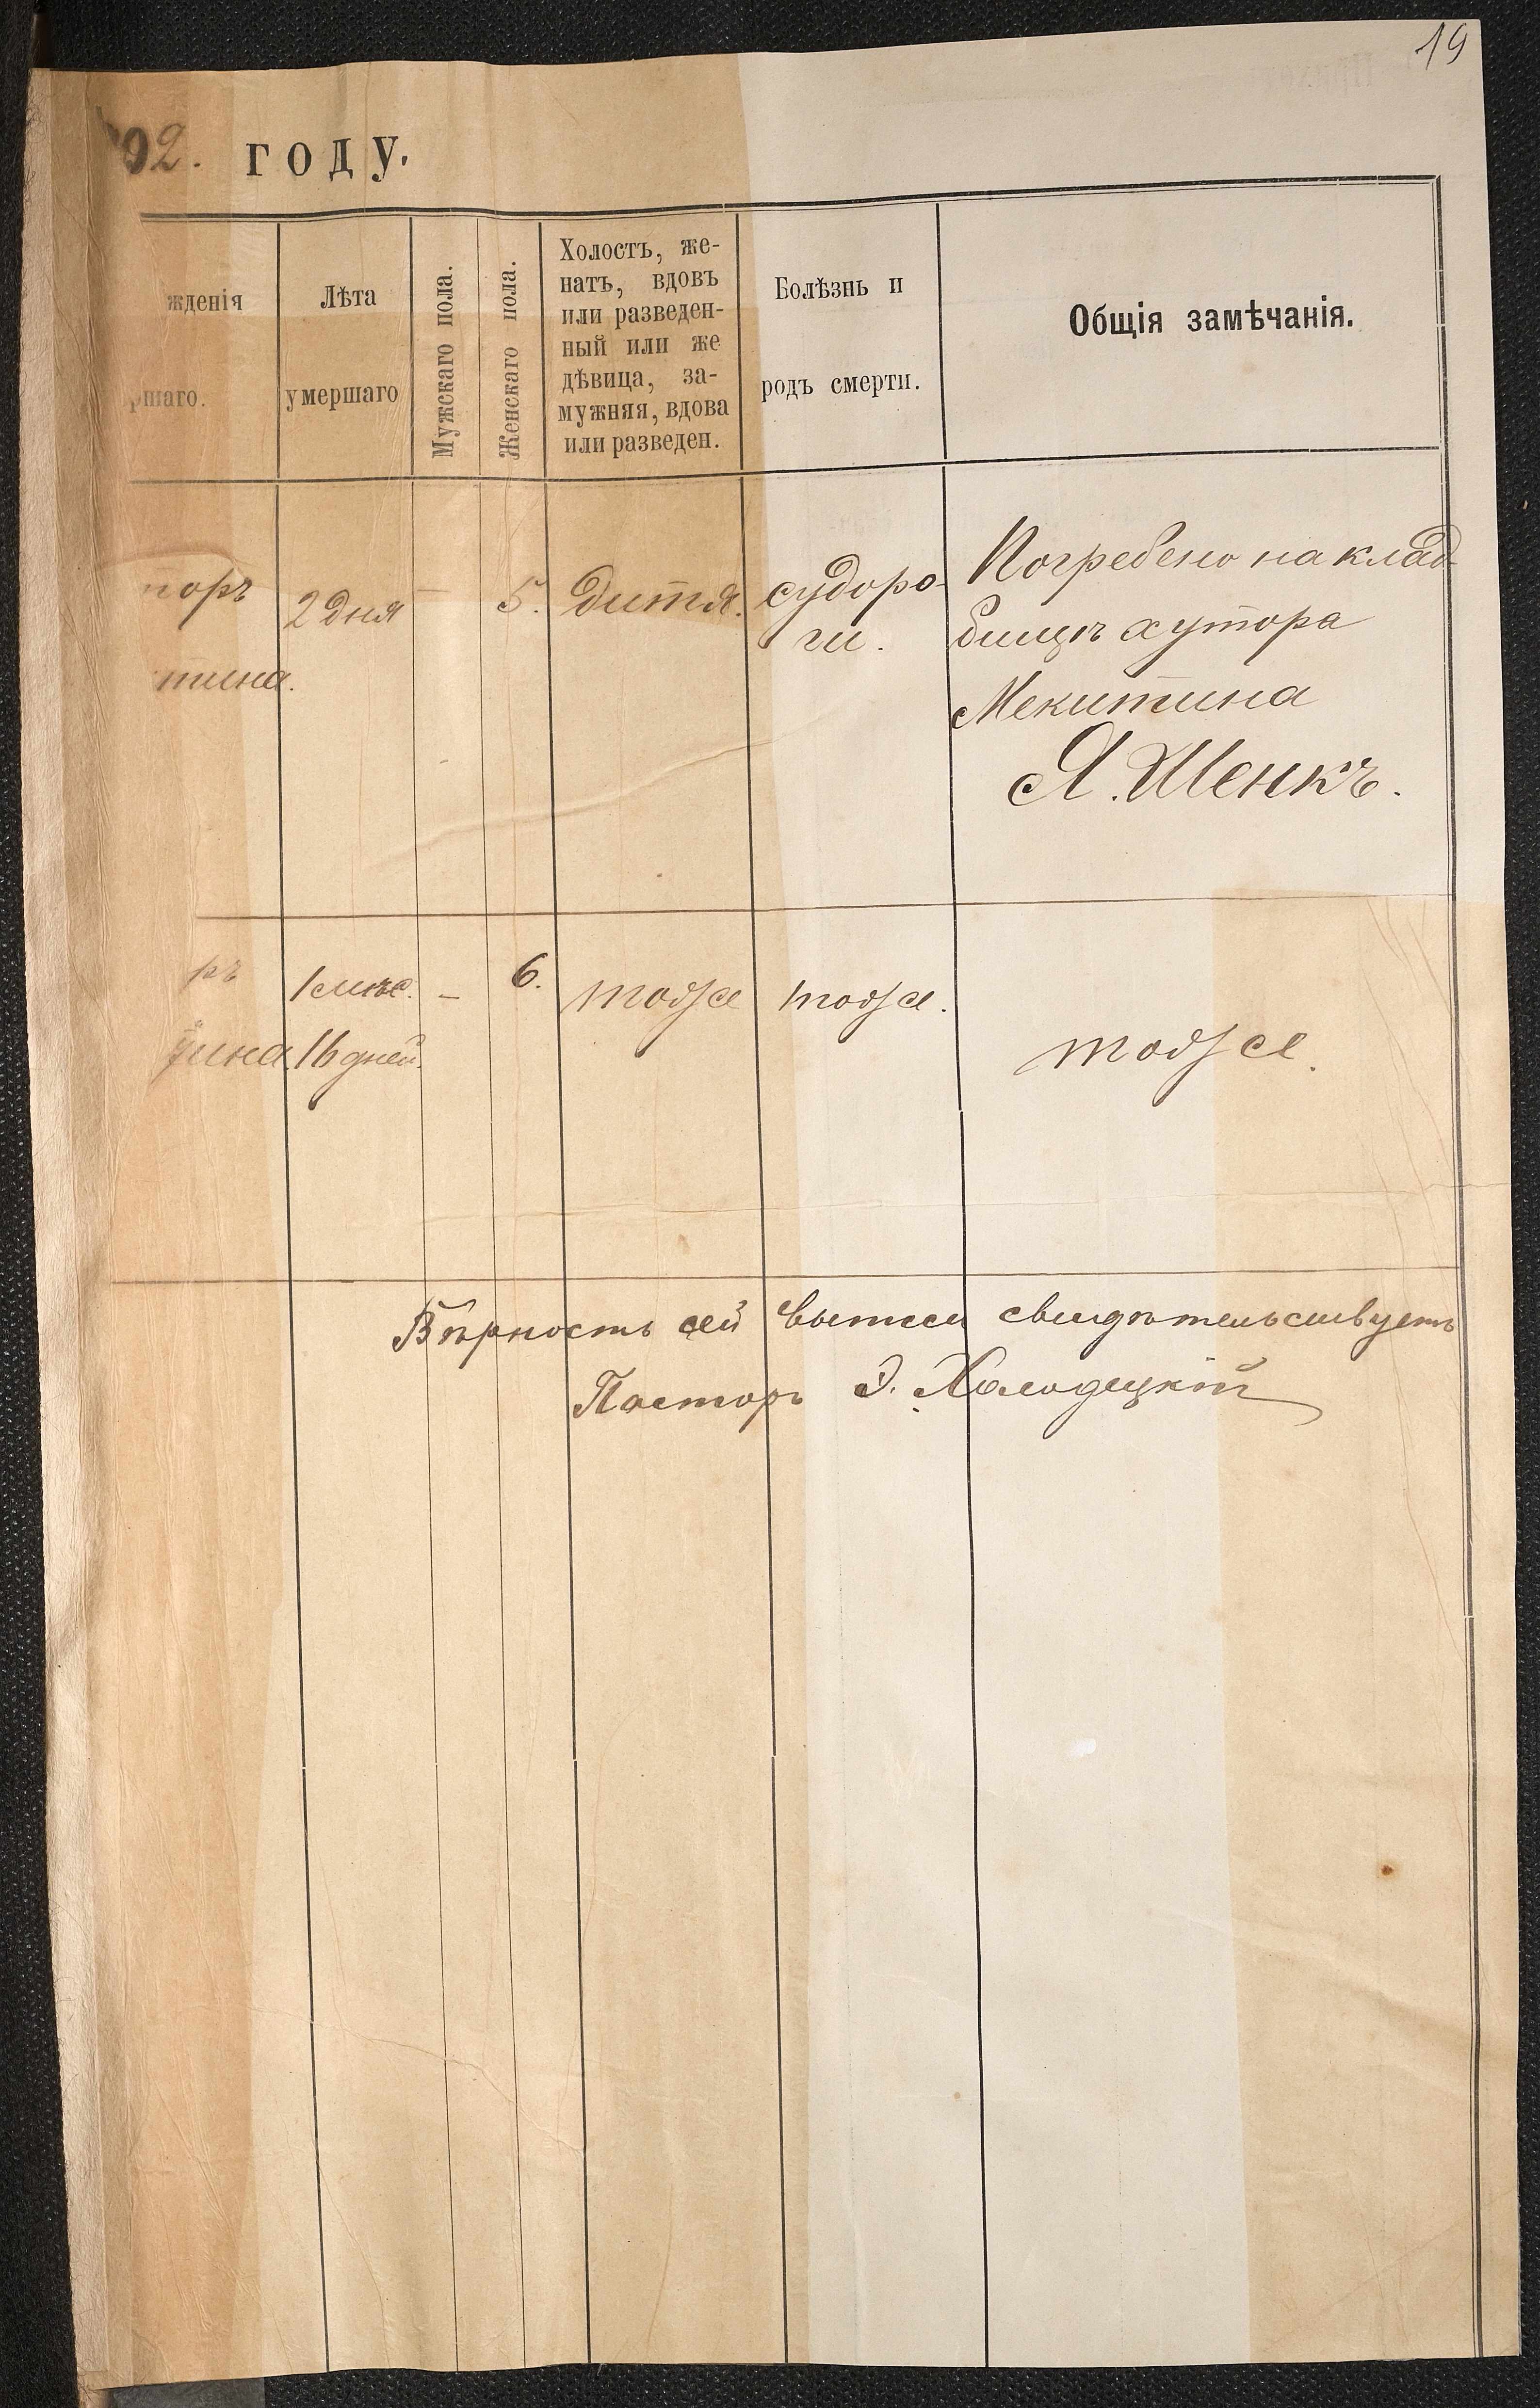 19
02. году.
жденія
ршаго.
Лѣта
умершаго
Мужскаго пола.
Женскаго пола.
Холостъ, же-
натъ, вдовъ
или разведен-
ный или же
дѣвица, за-
мужняя, вдова
или разведен.
Болѣзнь и
родъ смерти.
Общія замѣчанія.
торъ
тина.
2 дня
–
5.
дитя.
судоро-
ги.
Погребено на клад-
бищѣ хутора
Мекитина
Я. Шенкъ.
ръ
тина.
1 мѣс.
16 дней.
–
6.
тоже
тоже.
тоже.
Вѣрность сей выписи свидѣтельствуетъ
Пасторъ Э. Холодецкій